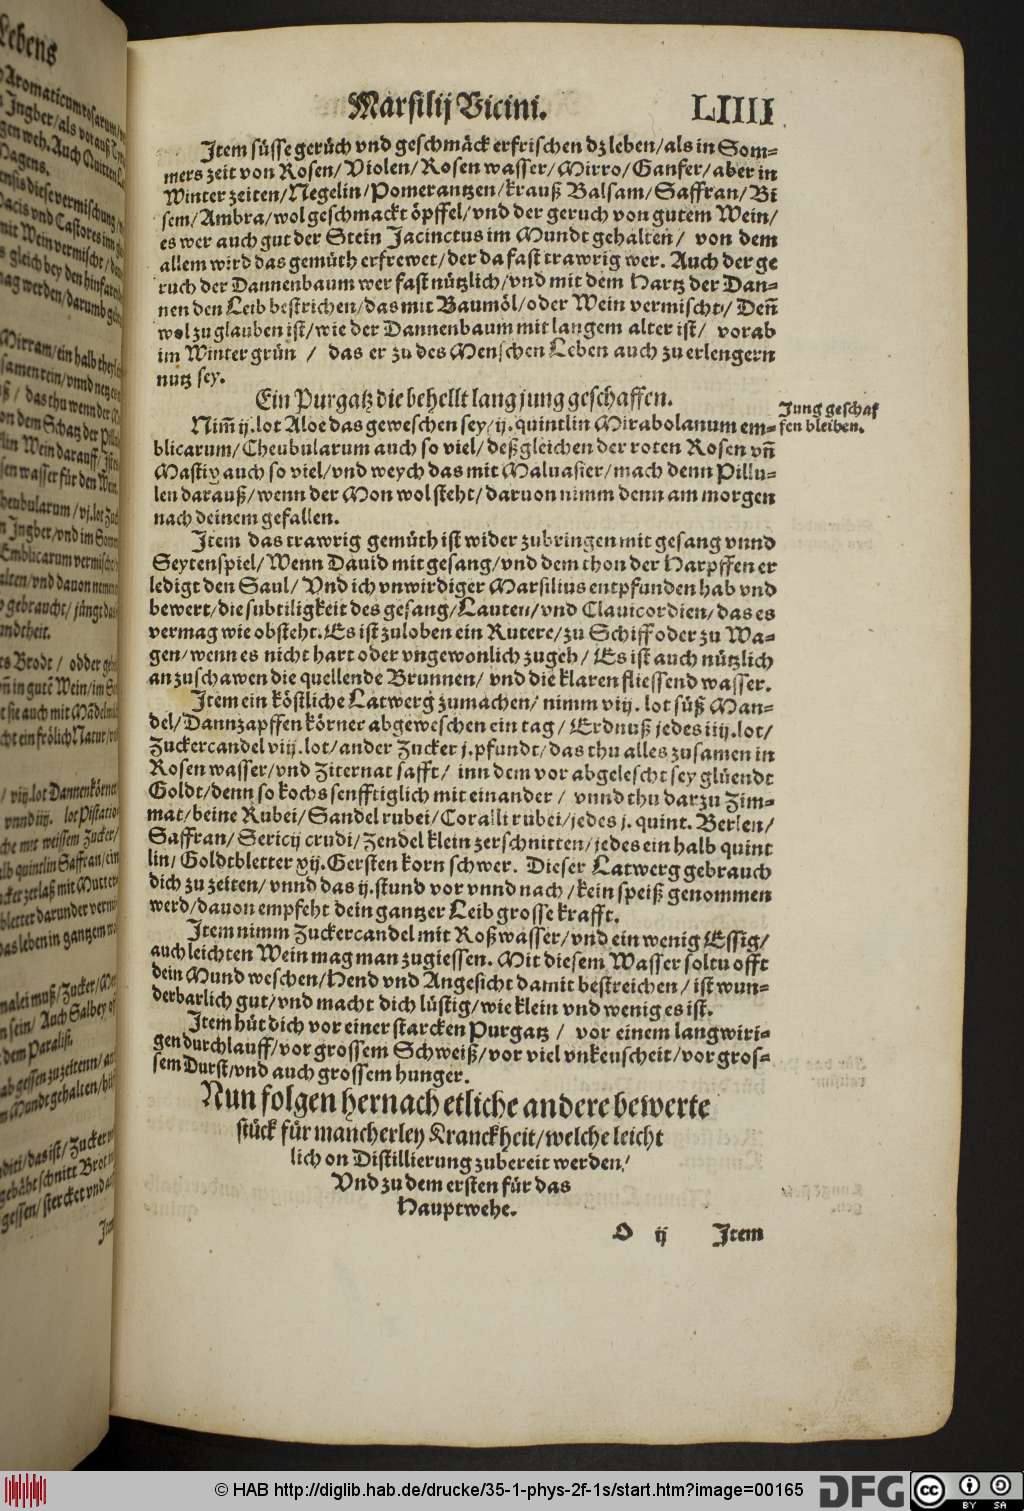 Lebens
Marsilij Vicini. LIIII
Item süsse gerüch vnd geschmäck erfrischen dz leben/als in Som=
mers zeit von Rosen/Violen/Rosen wasser/Mirro/Ganfer/aber in
Winter zeiten/Negelin/Pomerantzen/krauß Balsam/Saffran/Bi
sem/Ambra/wol geschmackt öpffel/vnd der geruch von gutem Wein/
es wer auch gut der Stein Jacinctus im Mundt gehalten/ von dem
allem wird das gemüth erfrewet/der da fast trawrig wer. Auch der ge
ruch der Dannenbaum wer fast nützlich/vnd mit dem Hartz der Dan=
nen den Leib bestrichen/das mit Baumöl/oder Wein vermischt/ Deñ
wol zu glauben ist/wie der Dannenbaum mit langem alter ist/ vorab
im Winter grün / das er zu des Menschen Leben auch zu erlengern
nutz sey.
Ein Purgatz die behellt lang jung geschaffen.
Jung geschaf
fen bleiben.
Nim̃ ij.lot Aloe das geweschen sey/ij.quintlin Mirabolanum em=
blicarum/Cheubularum auch so viel/deßgleichen der roten Rosen vñ
Mastix auch so viel/vnd weych das mit Maluasier/mach denn Pillu=
len darauß/wenn der Mon wol steht/daruon nimm denn am morgen
nach deinem gefallen.
Item das trawrig gemüth ist wider zubringen mit gesang vnnd
Seytenspiel/Wenn Dauid mit gesang/vnd dem thon der Harpffen er
ledigt den Saul/ Vnd ich vnwirdiger Marsilius entpfunden hab vnd
bewert/die subtiligkeit des gesang/Lauten/vnd Clauicordien/das es
vermag wie obsteht. Es ist zuloben ein Rutere/zu Schiff oder zu Wa=
gen/wenn es nicht hart oder vngewonlich zugeh/ Es ist auch nützlich
anzuschawen die quellende Brunnen/ vnd die klaren fliessend wasser.
Item ein köstliche Latwerg zumachen/ nimm viij. lot süß Man=
del/Dannzapffen körner abgeweschen ein tag/ Erdnuß jedes iiij.lot/
Zuckercandel viij.lot/ander Zucker j.pfundt/das thu alles zusamen in
Rosen wasser/vnd Ziternat safft/ inn dem vor abgelescht sey glüendt
Goldt/denn so kochs senfftiglich mit einander / vnnd thu darzu Zim=
mat/beine Rubei/Sandel rubei/Coralli rubei/jedes j. quint. Berlen/
Saffran/Sericij crudi/Zendel klein zerschnitten/jedes ein halb quint
lin/ Goldtbletter xij.Gersten korn schwer. Dieser Latwerg gebrauch
dich zu zeiten/ vnnd das ij.stund vor vnnd nach /kein speiß genommen
werd/dauon empfeht dein gantzer Leib grosse krafft.
Item nimm Zuckercandel mit Roßwasser/vnd ein wenig Essig/
auch leichten Wein mag man zugiessen. Mit diesem Wasser soltu offt
dein Mund weschen/Hend vnd Angesicht damit bestreichen/ ist wun=
derbarlich gut/vnd macht dich lüstig/wie klein vnd wenig es ist.
Item hüt dich vor einer starcken Purgatz / vor einem langwiri=
gen durchlauff/vor grossem Schweiß/vor viel vnkeuscheit/vor gros=
sem Durst/vnd auch grossem hunger.
Nun folgen hernach etliche andere bewerte
stück für mancherley Kranckheit/welche leicht
lich on Distillierung zubereit werden/
Vnd zu dem ersten für das
Hauptwehe.
O ij Item
© HAB http://diglib.hab.de/drucke/35-1-phys-2f-1s/start.htm?image=00165
DFG
cc
BY SA